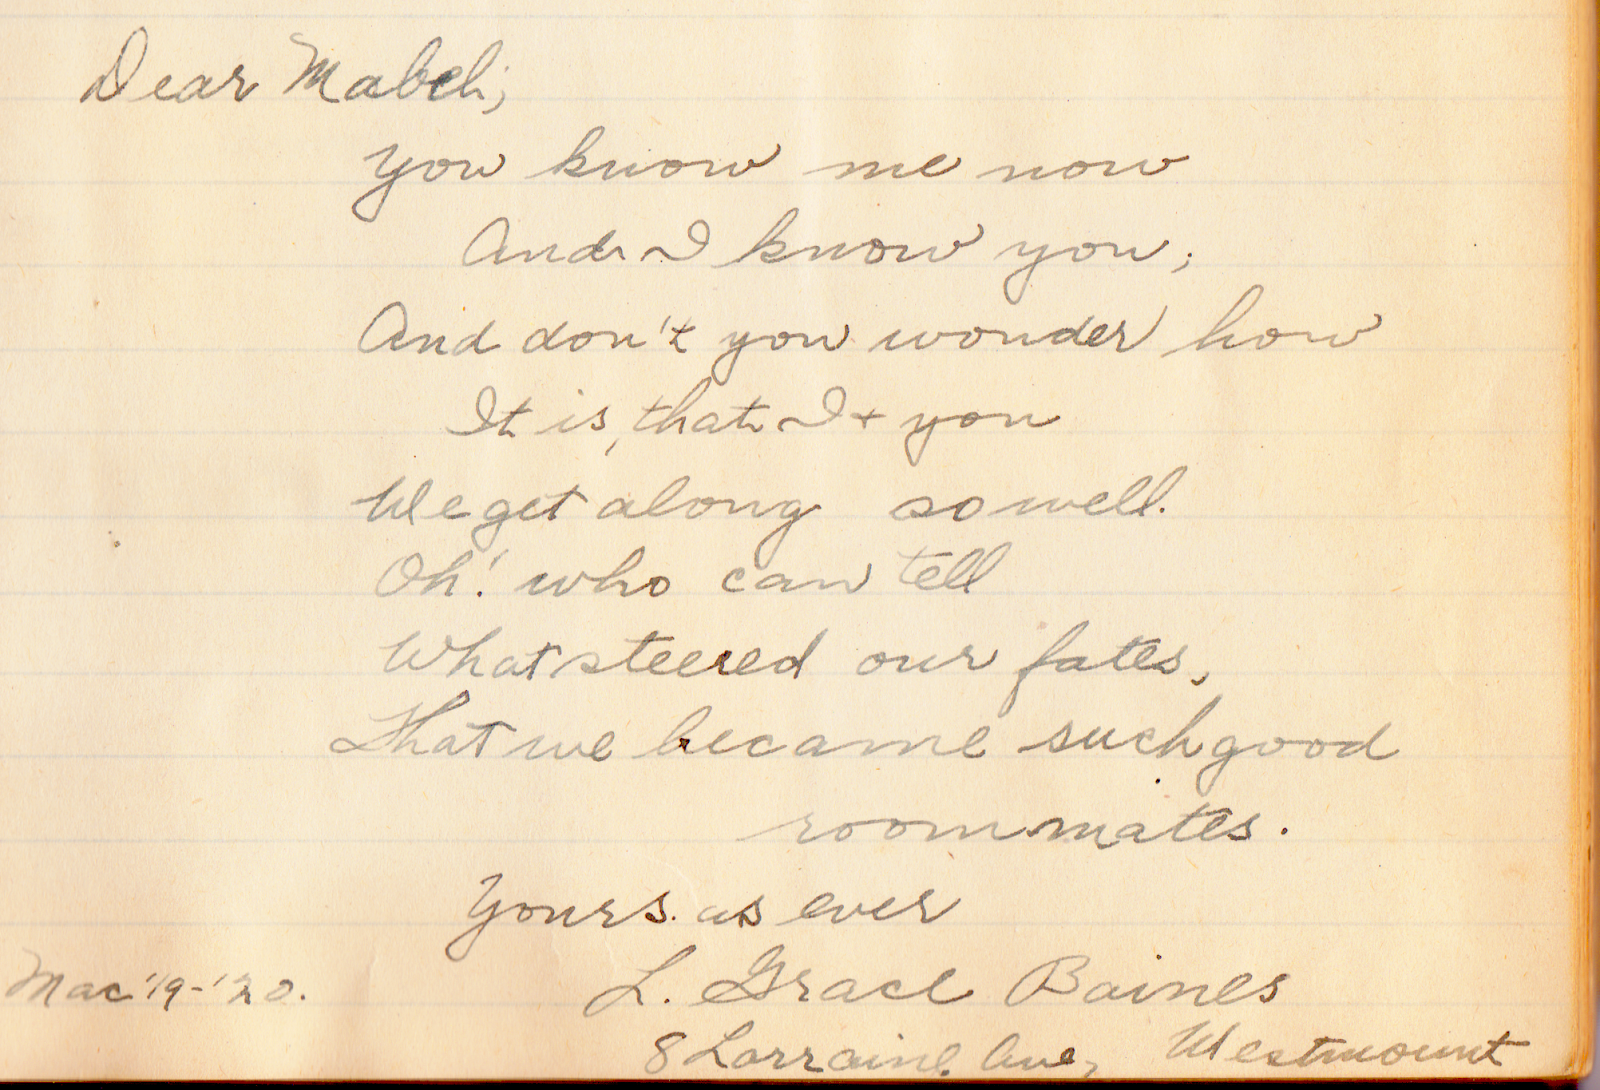 Dear Mabel;
You know me now
And I know you;
And don't you wonder how
It is, that I + you
We get along so well.
Oh! who can tell
What steered our fates,
That we became such good
roommates.
Yours as ever
Mac '19-'20.
L. Grace Baines
8 Lorraine Ave, Westmount